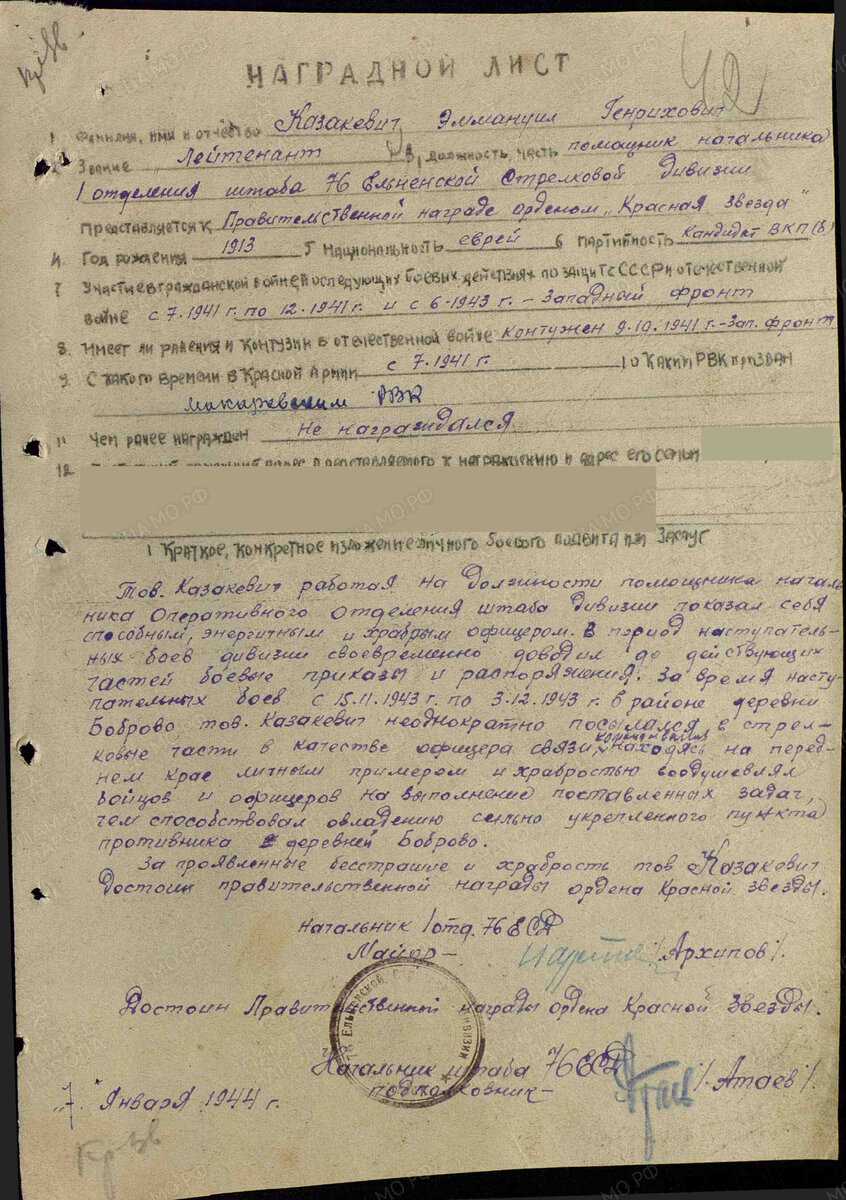 НАГРАДНОЙ ЛИСТ
42
1 Фамилия, имя и отчество Казакевич Эммануил Генрихович
2 Звание Лейтенант 3, должность, часть помощник начальника
1 отделения штаба 76 Ельненской Стрелковой Дивизии
Представляется к Правительственной награде орденом „Красная Звезда"
4. Год рождения 1913 5 Национальность еврей 6 Партийность Кандидат ВКП(б)
7 Участие в гражданской войне и последующих боевых действиях по защите СССР и отечественной
войне с 7.1941 г. по 12.1941 г. и с 6-1943 г. – Западный фронт
8. Имеет ли ранения и контузии в отечественной войне Контужен 9.10.1941 г.-Зап. фронт
9. С какого времени в Красной Армии с 7.1941 г. 10 Каким РВК призван
РВК
11 Чем ранее награжден не награждался
12 представляемого к награждению и адрес его семьи
1 Краткое, конкретное изложение личного боевого подвига или заслуг
Тов. Казакевич работая на должности помощника началь-
ника Оперативного отделения штаба дивизии показал себя
способным, энергичным и храбрым офицером. В период наступатель-
ных боев дивизии своевременно доводил до действующих
частей боевые приказы и распоряжения. За время насту-
пательных боев с 15.11.1943 г. по 3.12.1943 г. в районе деревни
Боброво, тов. Казакевич неоднократно посылался в стрел-
ковые части в качестве офицера связи, находясь на перед-
нем крае личным примером и храбростью воодушевлял
бойцов и офицеров на выполнение поставленных задач,
чем способствовал овладению сильно укрепленного пункта
противника деревней Боброво.
За проявленные бесстрашие и храбрость тов Казакевич
Достоин правительственной награды ордена Красной Звезды.
Начальник 1 отд. 76 ЕСД
Майор – /Архипов/.
Достоин Правительственной награды ордена Красной Звезды.
Начальник штаба 76 ЕСД
подполковник – /. Атаев/.
„7" Января 1944 г.
Кр-Зв